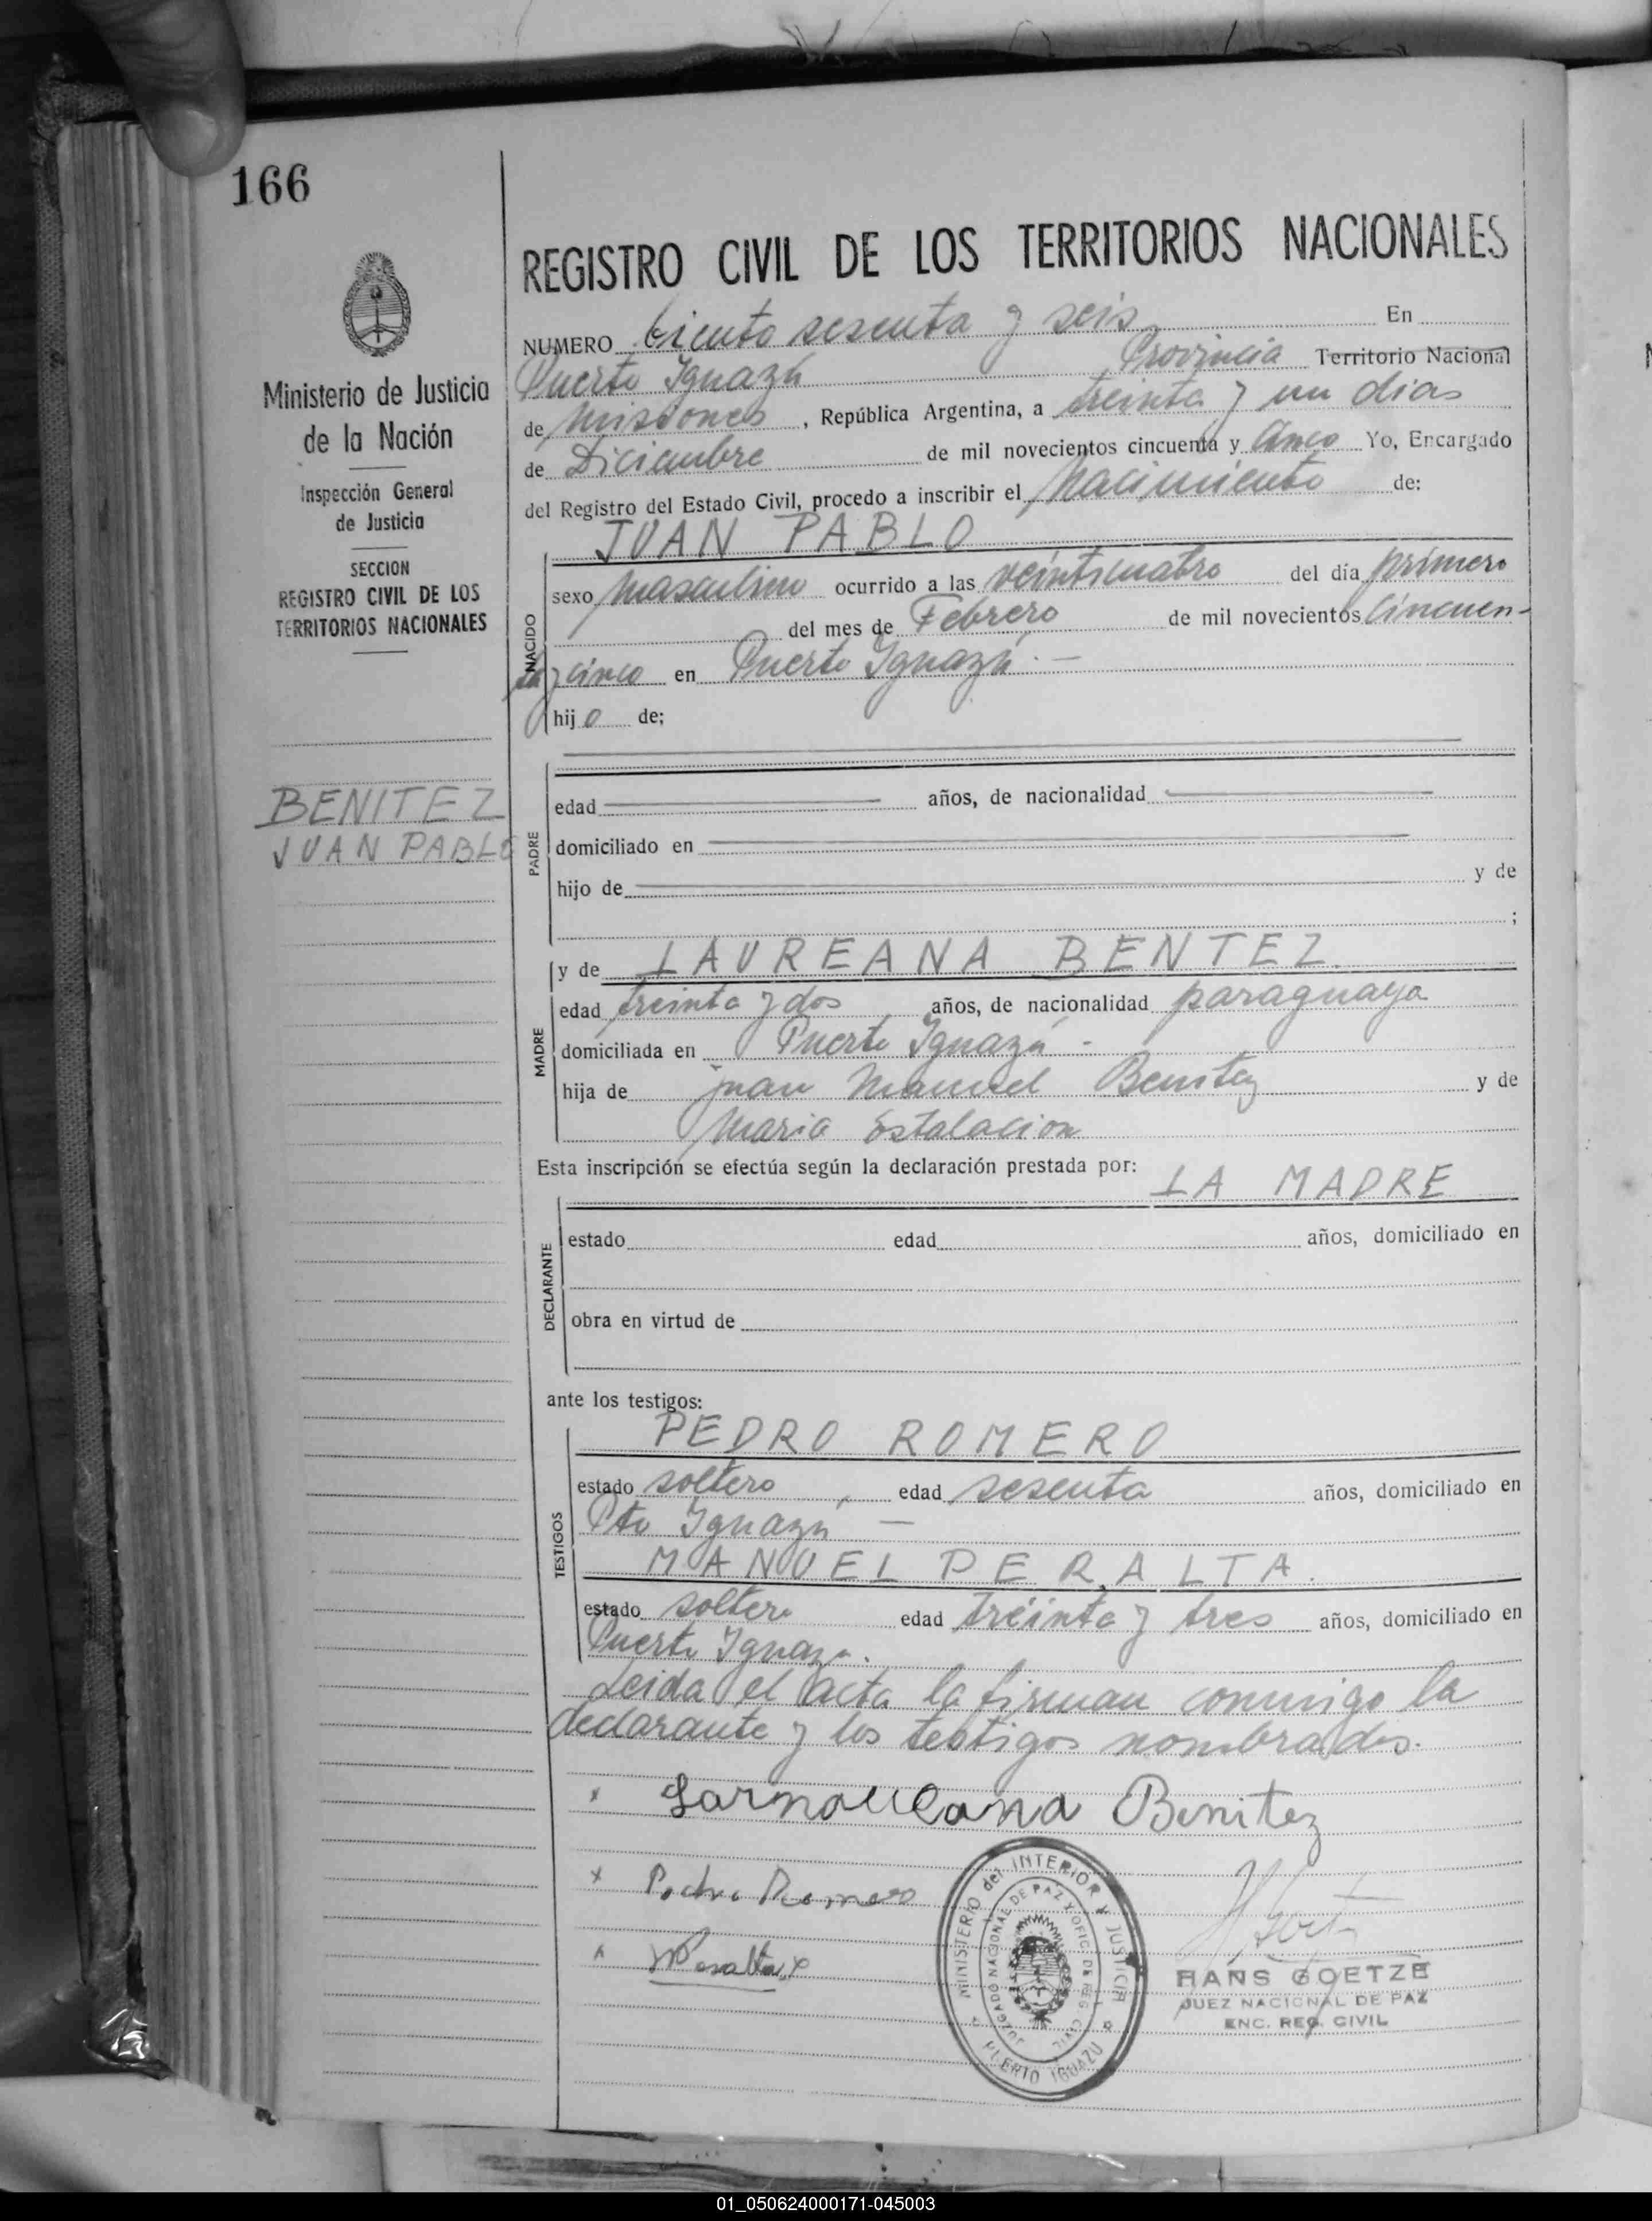 166
REGISTRO CIVIL DE LOS TERRITORIOS NACIONALES
NUMERO Ciento sesenta y seis En
Puerto Iguazú Provincia Territorio Nacional
de Misiones, República Argentina, a treinta y un dias
de Diciembre de mil novecientos cincuenta y Cinco Yo, Encargado
del Registro del Estado Civil, procedo a inscribir el Nacimiento de:
Ministerio de Justicia
de la Nación
Inspección General
de Justicia
SECCION
REGISTRO CIVIL DE LOS
TERRITORIOS NACIONALES
BENITEZ
JUAN PABLO
NACIDO
JUAN PABLO
sexo Masculino ocurrido a las veinticuatro del día primero
del mes de Febrero de mil novecientos Cincuen-
ta y cinco en Puerto Iguazú.-
hijo de;
PADRE
edad años, de nacionalidad
domiciliado en
hijo de y de
;
MADRE
y de LAUREANA BENTEZ.
edad treinta y dos años, de nacionalidad paraguaya
domiciliada en Puerto Iguazú -
hija de Juan Manuel Benitez y de
Maria Estalacion
Esta inscripción se efectúa según la declaración prestada por:
LA MADRE
DECLARANTE
estado edad años, domiciliado en
obra en virtud de
ante los testigos:
TESTIGOS
PEDRO ROMERO
estado soltero, edad sesenta años, domiciliado en
Pto Iguazú -
MANUEL PERALTA.
estado soltero edad treinta y tres años, domiciliado en
Puerto Iguazu.
Leida el acta la firman conmigo la
declarante y los testigos nombrados.
x Benitez
x Pedro Romero
x MPeralta
MINISTERIO del INTERIOR Y JUSTICIA
JUZGADO NACIONAL DE PAZ Y OFIC. DE REG. CIVIL
PUERTO IGUAZU
HANS GOETZE
JUEZ NACIONAL DE PAZ
ENC. REG. CIVIL
01_050624000171-045003